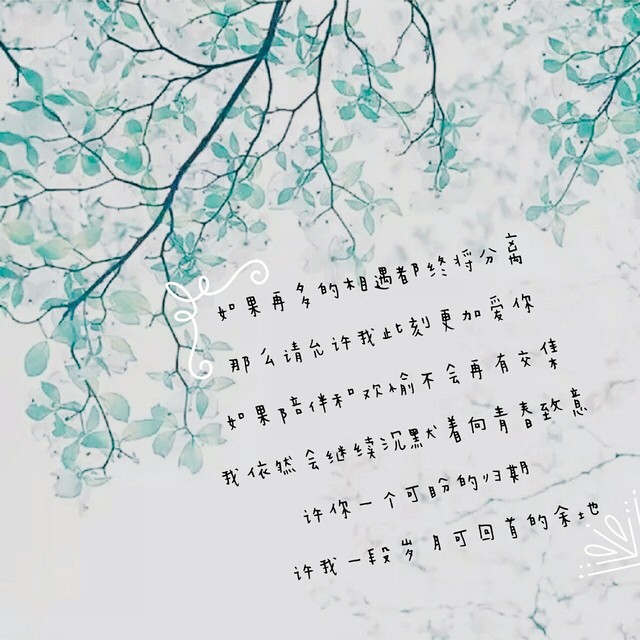 如果再多的相遇都终将分离
那么请允许我此刻更加爱你
如果陪伴和欢愉不会再有交集
我依然会继续沉默着向青春致意
许你一个可盼的归期
许我一段岁月可回首的余地